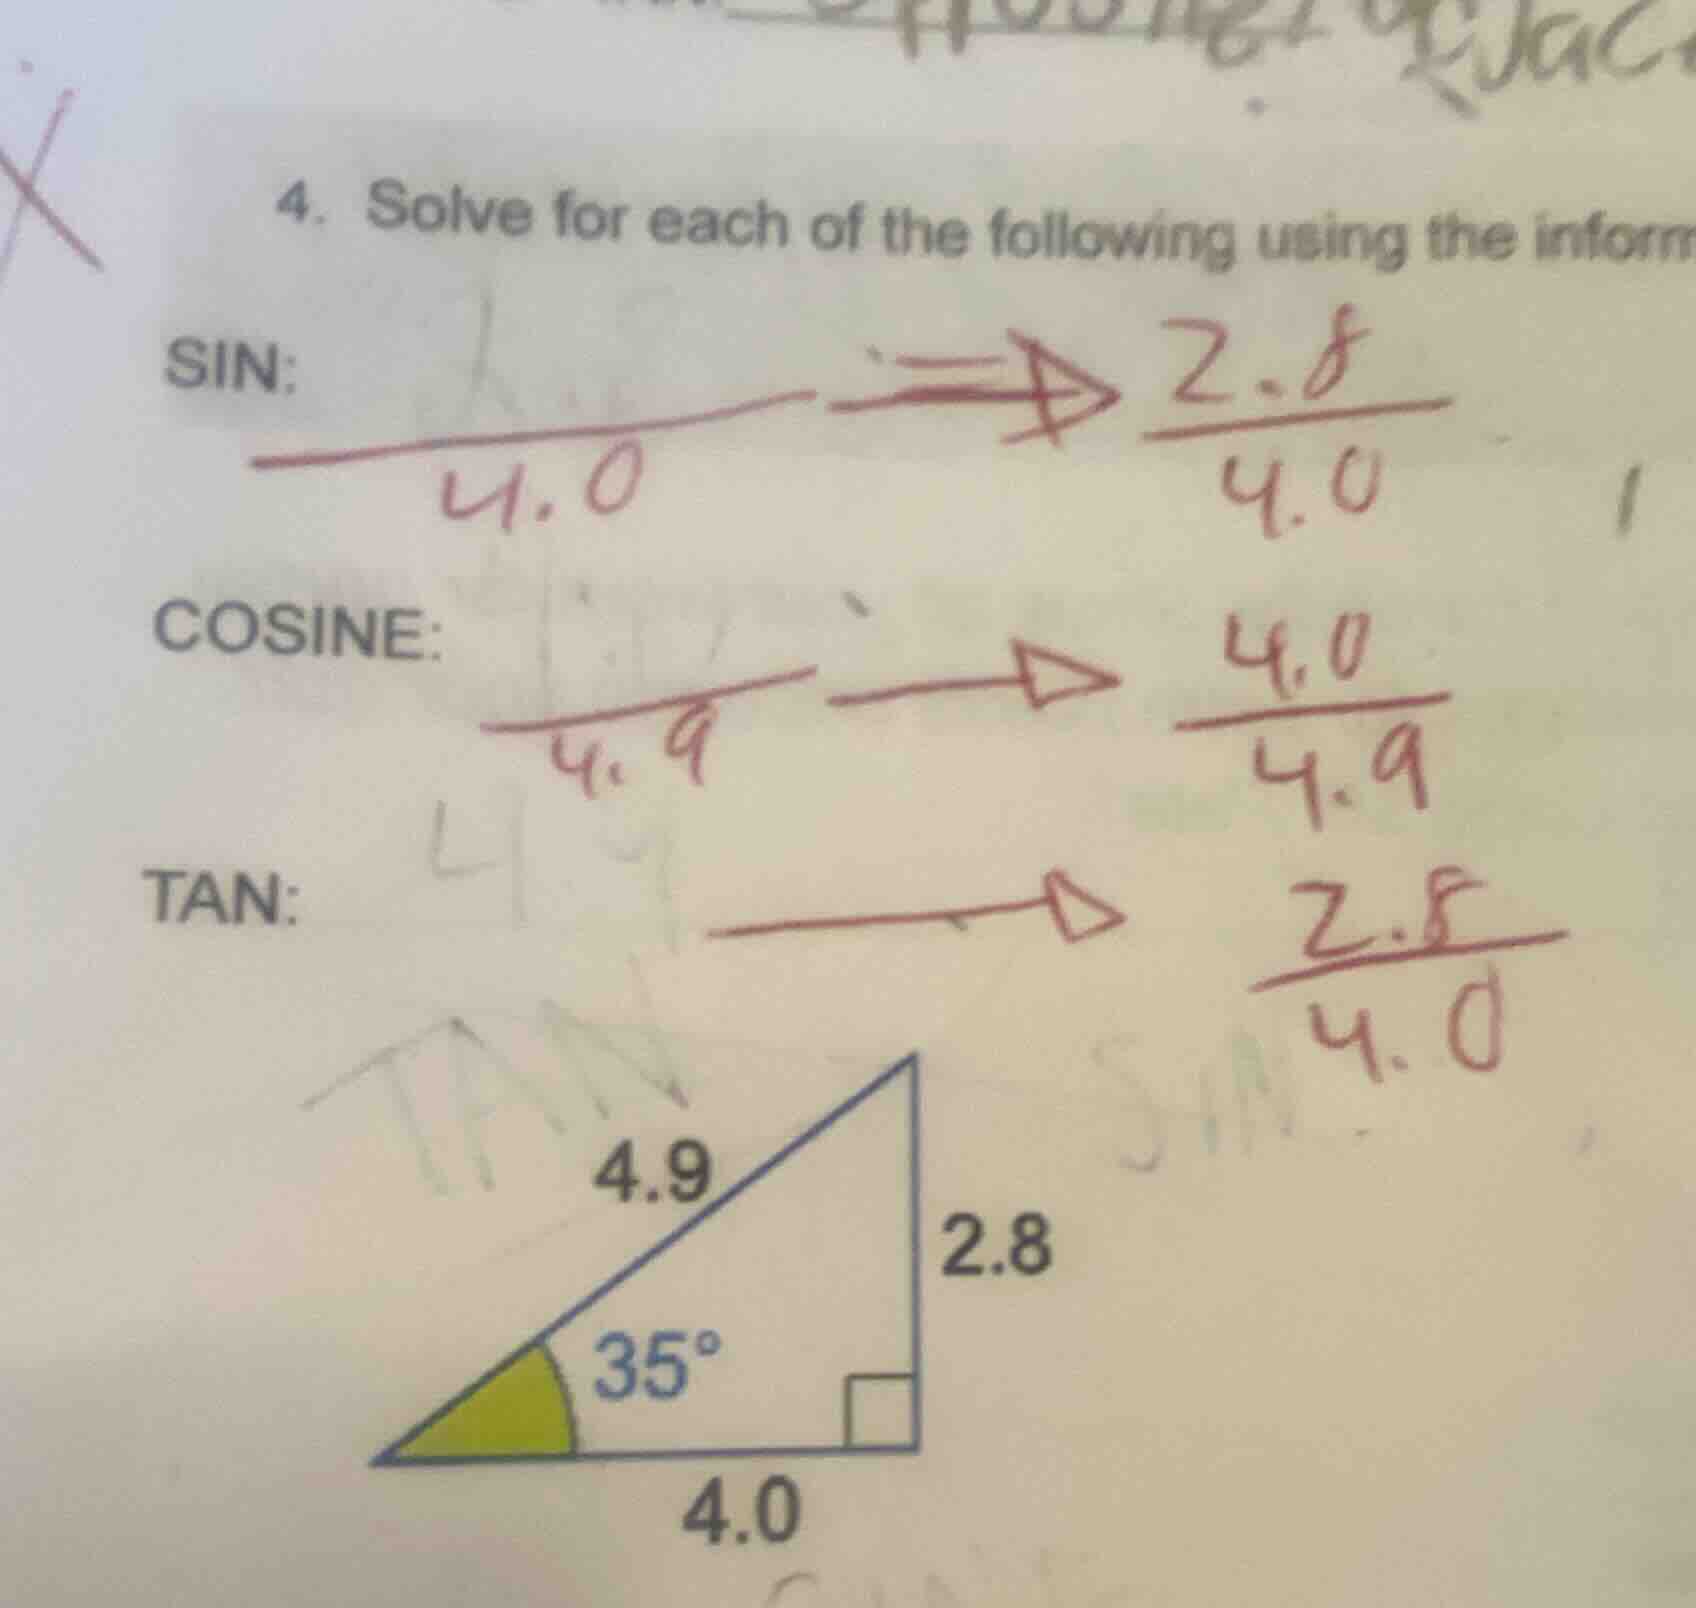 4. Solve for each of the following using the inform
SIN:
4.0
2.8
4.0
COSINE:
4.9
4.0
4.9
TAN:
4 9
2.8
4.0
TAN
SIN
4.9
2.8
35°
4.0